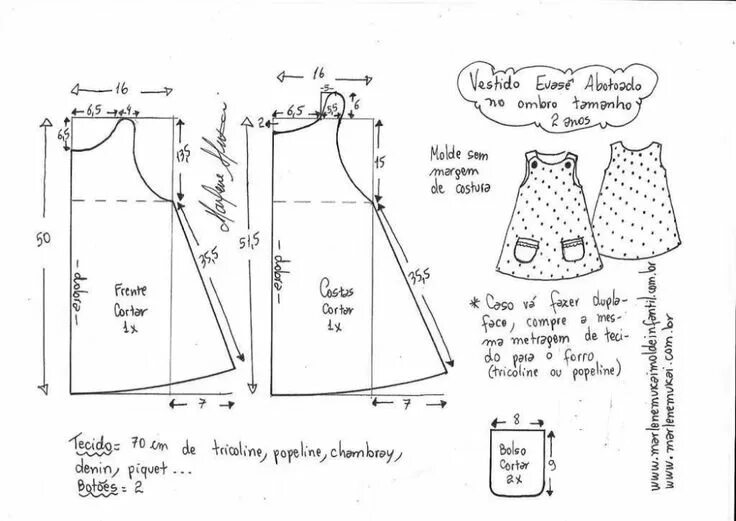 16
6,5
4
6,5
13,5
50
35,5
dobra
Frente
Cortar
1x
7
Marlene Mukai
16
5
6,5
5,5
6
2
15
51,5
35,5
dobra
Costas
Cortar
1x
7
Vestido Evasê Abotoado
no ombro tamanho
2 anos
Molde sem
margem
de costura
* Caso vá fazer dupla-
face, compre a mes-
ma metragem de teci-
do para o forro
(tricoline ou popeline)
www.marlenemukaimoldeinfantil.com.br
www.marlenemukai.com.br
Tecido= 70 cm de tricoline, popeline, chambray,
denin, piquet ...
Botões = 2
8
Bolso
Cortar
2x
9